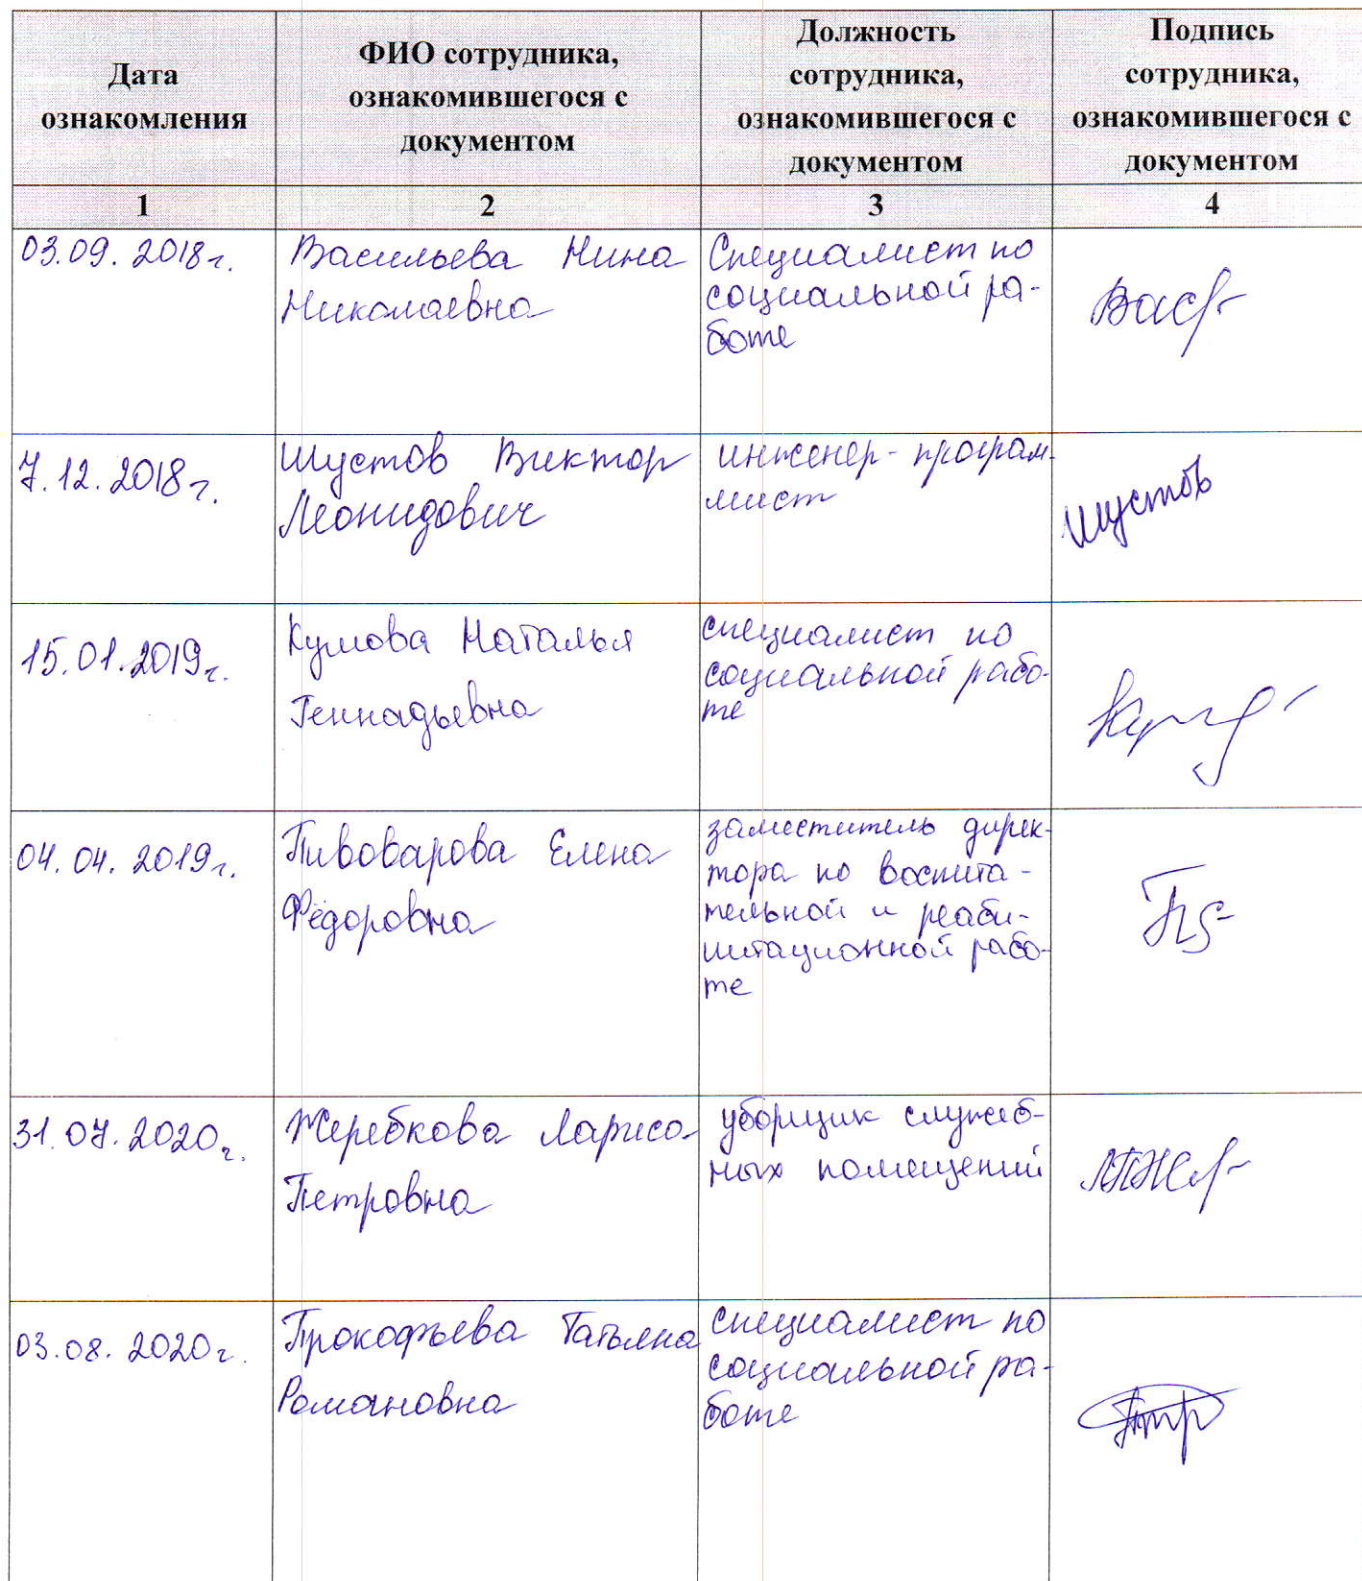 Дата
ознакомления
ФИО сотрудника,
ознакомившегося с
документом
Должность
сотрудника,
ознакомившегося с
документом
Подпись
сотрудника,
ознакомившегося с
документом
1
2
3
4
03.09.2018г.
Васильева Нина
Николаевна
Специалист по
социальной ра-
боте
7.12.2018г.
Шустов Виктор
Леонидович
инженер-програм-
мист
Шустов
15.01.2019г.
Кумова Наталья
Геннадьевна
специалист по
социальной рабо-
те
04.04.2019г.
Пивоварова Елена
Фёдоровна
заместитель дирек-
тора по воспита-
тельной и реаби-
литационной рабо-
те
31.07.2020г.
Жеребкова Лариса
Петровна
уборщик служеб-
ных помещений
03.08.2020г.
Прокофьева Татьяна
Романовна
специалист по
социальной ра-
боте